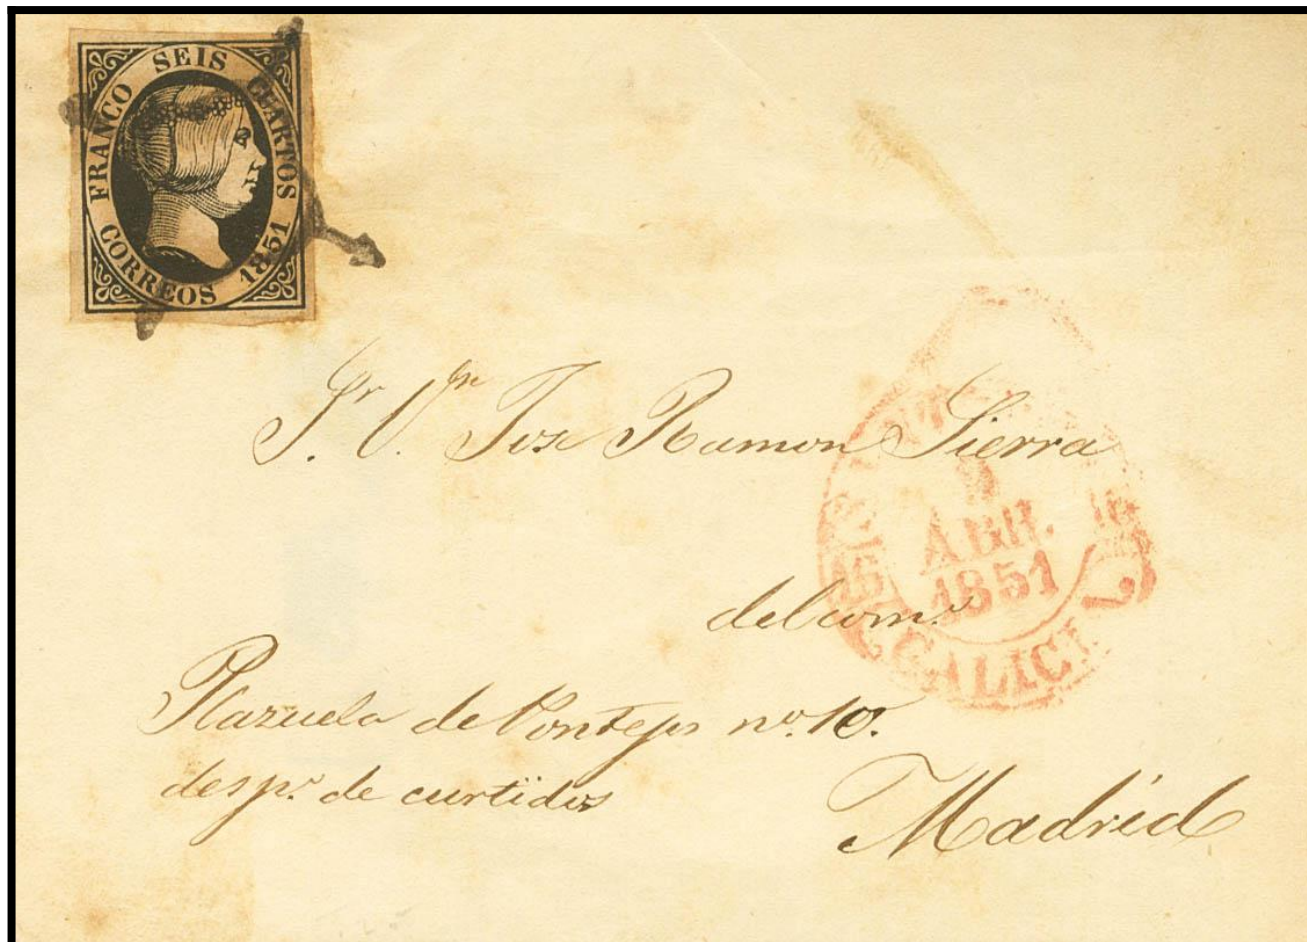 FRANCO SEIS CUARTOS
CORREOS 1851
Sr. Dn. Jose Ramon Sierra
ABR.
1851
16
16
GALICI
del com.o
Plazuela de Pontejos no. 10.
desp.o de curtidos
Madrid